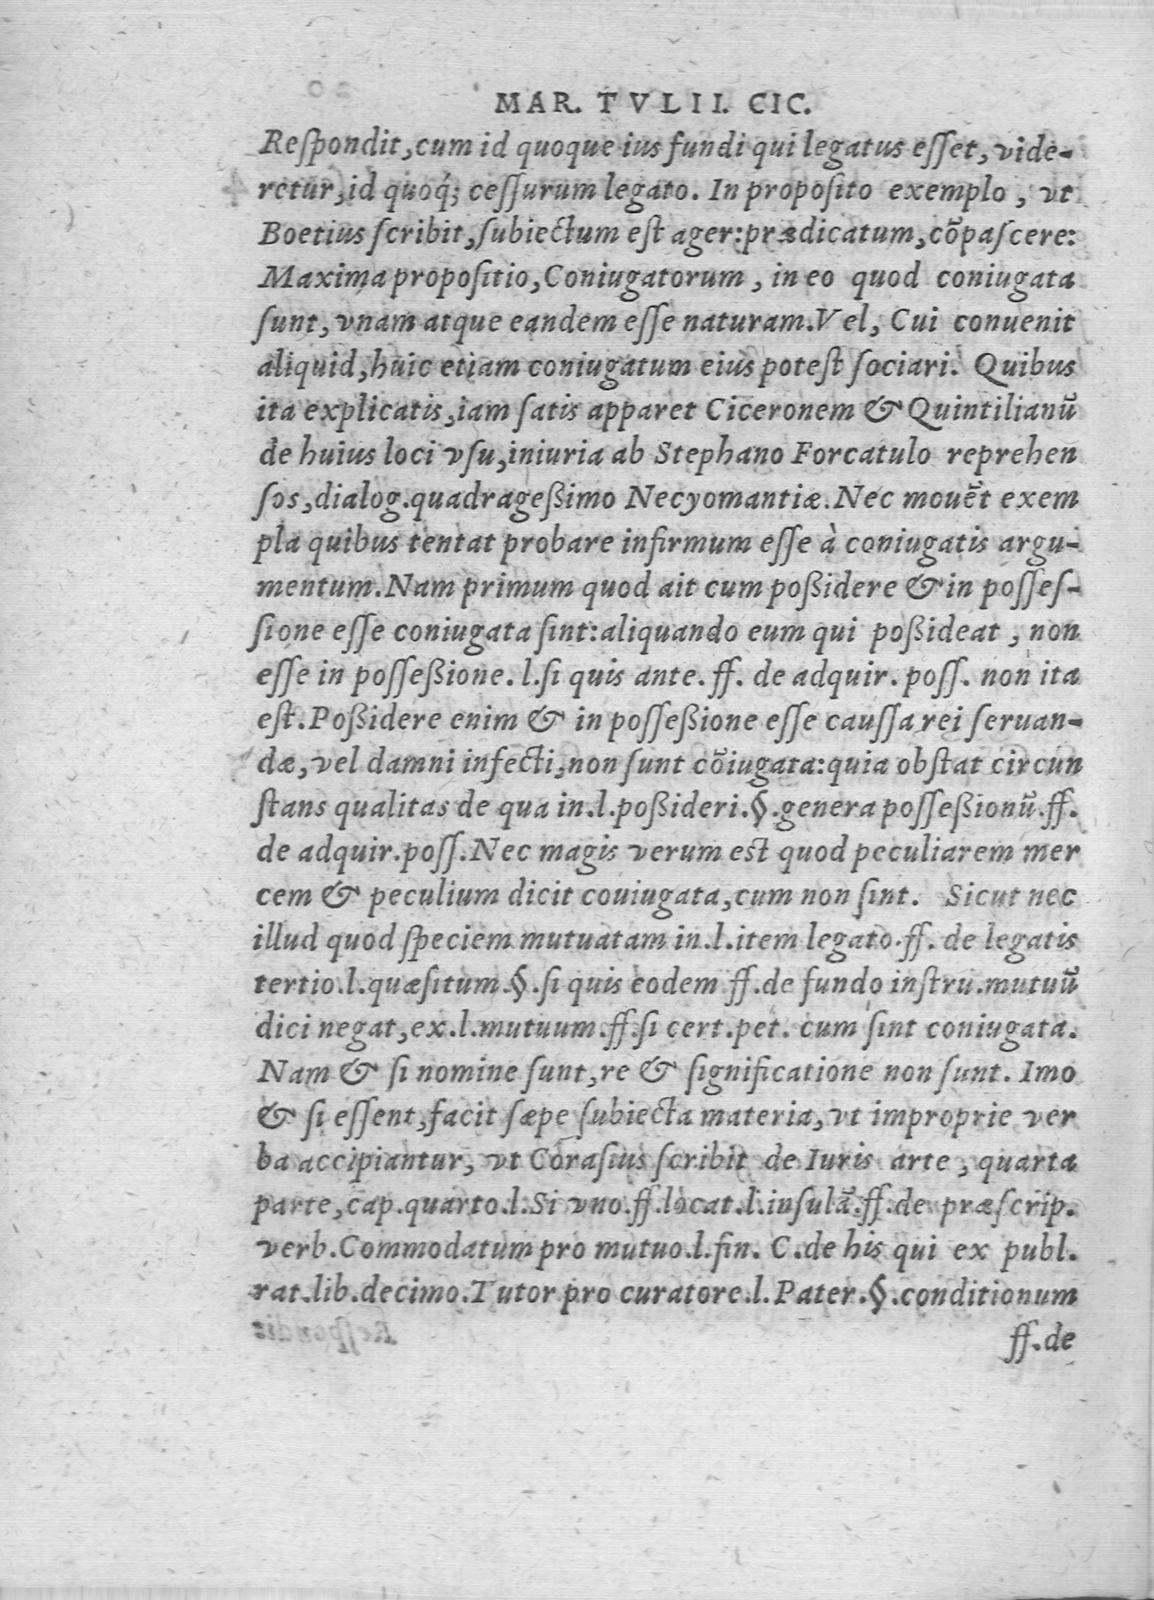 MAR. TVLII. CIC.
Reſpondit, cum id quoque ius fundi qui legatus eſſet, vide-
retur, id quoq́; ceſſurum legato. In propoſito exemplo, vt
Boetius ſcribit, ſubiectum eſt ager: prædicatum, cōpaſcere:
Maxima propoſitio, Coniugatorum, in eo quod coniugata
ſunt, vnam atque eandem eſſe naturam. Vel, Cui conuenit
aliquid, huic etiam coniugatum eius poteſt ſociari. Quibus
ita explicatis, iam ſatis apparet Ciceronem & Quintilianū
de huius loci vſu, iniuria ab Stephano Forcatulo reprehen
ſos, dialog. quadrageßimo Necyomantiæ. Nec mouēt exem
pla quibus tentat probare infirmum eſſe à coniugatis argu-
mentum. Nam primum quod ait cum poßidere & in poſſeſ-
ſione eſſe coniugata ſint: aliquando eum qui poßideat, non
eſſe in poſſeßione. l. ſi quis ante. ff. de adquir. poſſ. non ita
eſt. Poßidere enim & in poſſeßione eſſe cauſſa rei ſeruan-
dæ, vel damni infecti, non ſunt cōiugata: quia obſtat circun
ſtans qualitas de qua in. l. poßideri. §. genera poſſeßionū. ff.
de adquir. poſſ. Nec magis verum est quod peculiarem mer
cem & peculium dicit couiugata, cum non ſint. Sicut nec
illud quod ſpeciem mutuatam in. l. item legato. ff. de legatis
tertio. l. quæſitum. §. ſi quis eodem ff. de fundo inſtru. mutuū
dici negat, ex. l. mutuum. ff. ſi cert. pet. cum ſint coniugata.
Nam & ſi nomine ſunt, re & ſignificatione non ſunt. Imo
& ſi eſſent, facit ſæpe ſubiecta materia, vt improprie ver
ba accipiantur, vt Coraſius ſcribit de Iuris arte, quarta
parte, cap. quarto. l. Si vno. ff. locat. l. inſulā. ff. de præſcrip.
verb. Commodatum pro mutuo. l. fin. C. de his qui ex publ.
rat. lib. decimo. Tutor pro curatore. l. Pater. §. conditionum
ff. de